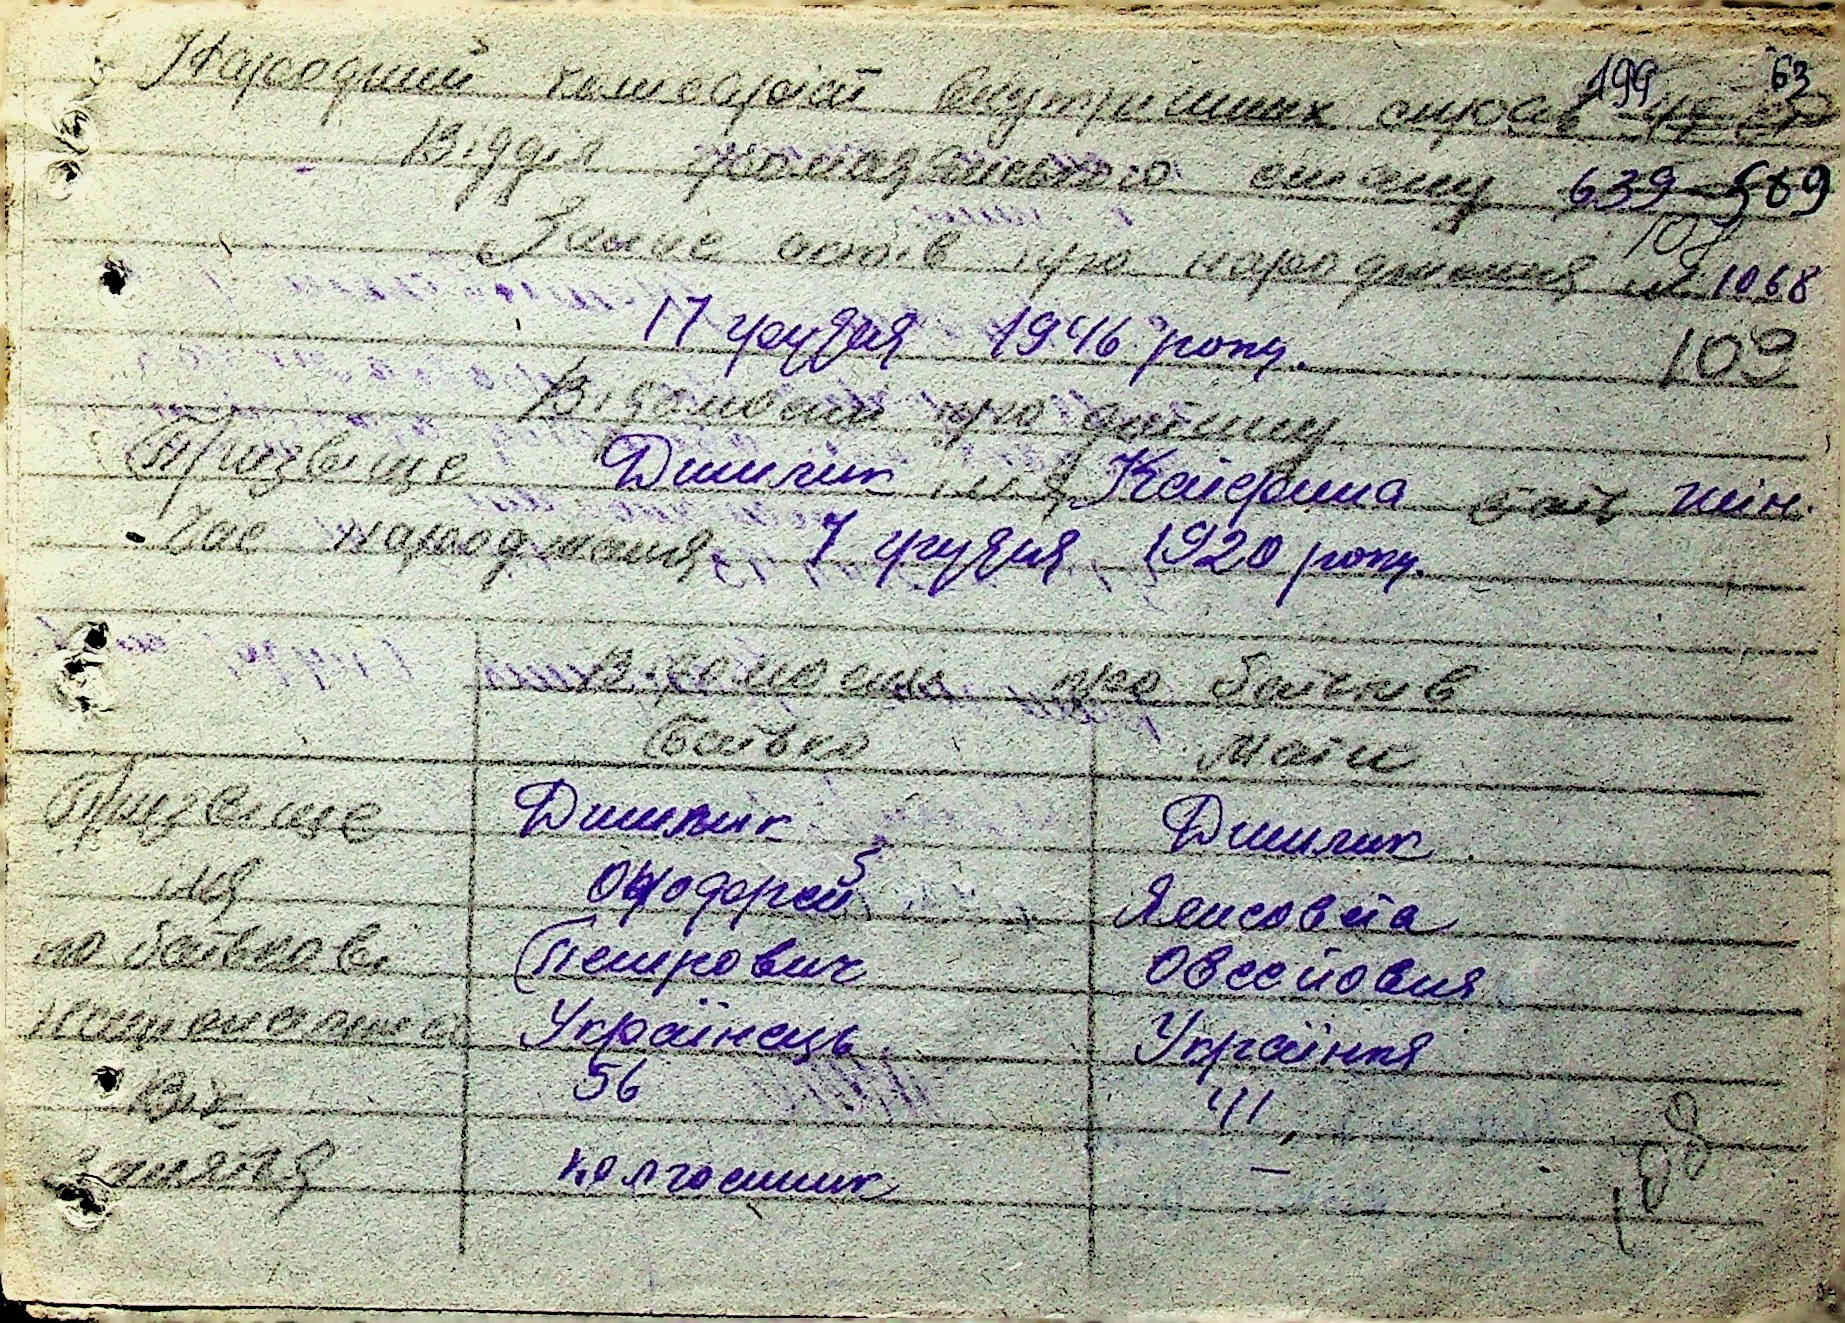 Народний комісаріат внутрішніх справ 199 63
Відділ громадянського стану 639 569
Запис актів про народження № 1068
17 грудня 1946 року. 109
Відомості про дитину
Прізвище Дишлик імя Катерина стать жін.
Час народження 7 грудня 1920 року.
Відомости про батьків
Батько Мати
Прізвище Дишлик Дишлик
імя Явисовета
по батькові Петрович Овсейовня
національність Українець Українка
Вік 56 41
Заняття колгоспник —
108